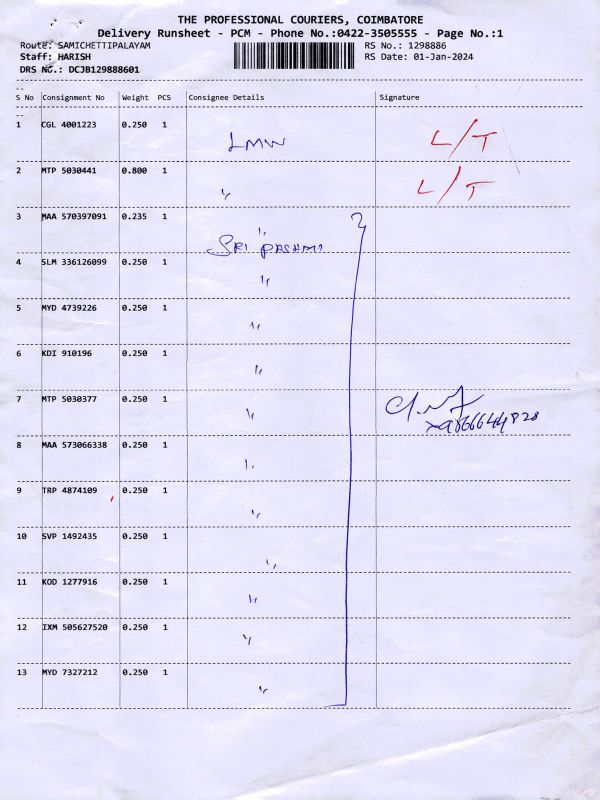 THE PROFESSIONAL COURIERS, COIMBATORE
Delivery Runsheet - PCM - Phone No.:0422-3505555 - Page No.:1
Route: SAMICHETTIPALAYAM RS No.: 1298886
Staff: HARISH RS Date: 01-Jan-2024
DRS No.: DCJB129888601
S No Consignment No Weight PCS Consignee Details Signature
1 CGL 4001223 0.250 1 LMW L/T
2 MTP 5030441 0.800 1 〃 L/T
3 MAA 570397091 0.235 1 〃
SRI
4 SLM 336126099 0.250 1 〃
5 MYD 4739226 0.250 1 〃
6 KDI 910196 0.250 1 〃
7 MTP 5030377 0.250 1 〃
8 MAA 573066338 0.250 1 〃
9 TRP 4874109 0.250 1 〃
10 SVP 1492435 0.250 1 〃
11 KOD 1277916 0.250 1 〃
12 IXM 505627520 0.250 1 〃
13 MYD 7327212 0.250 1 〃